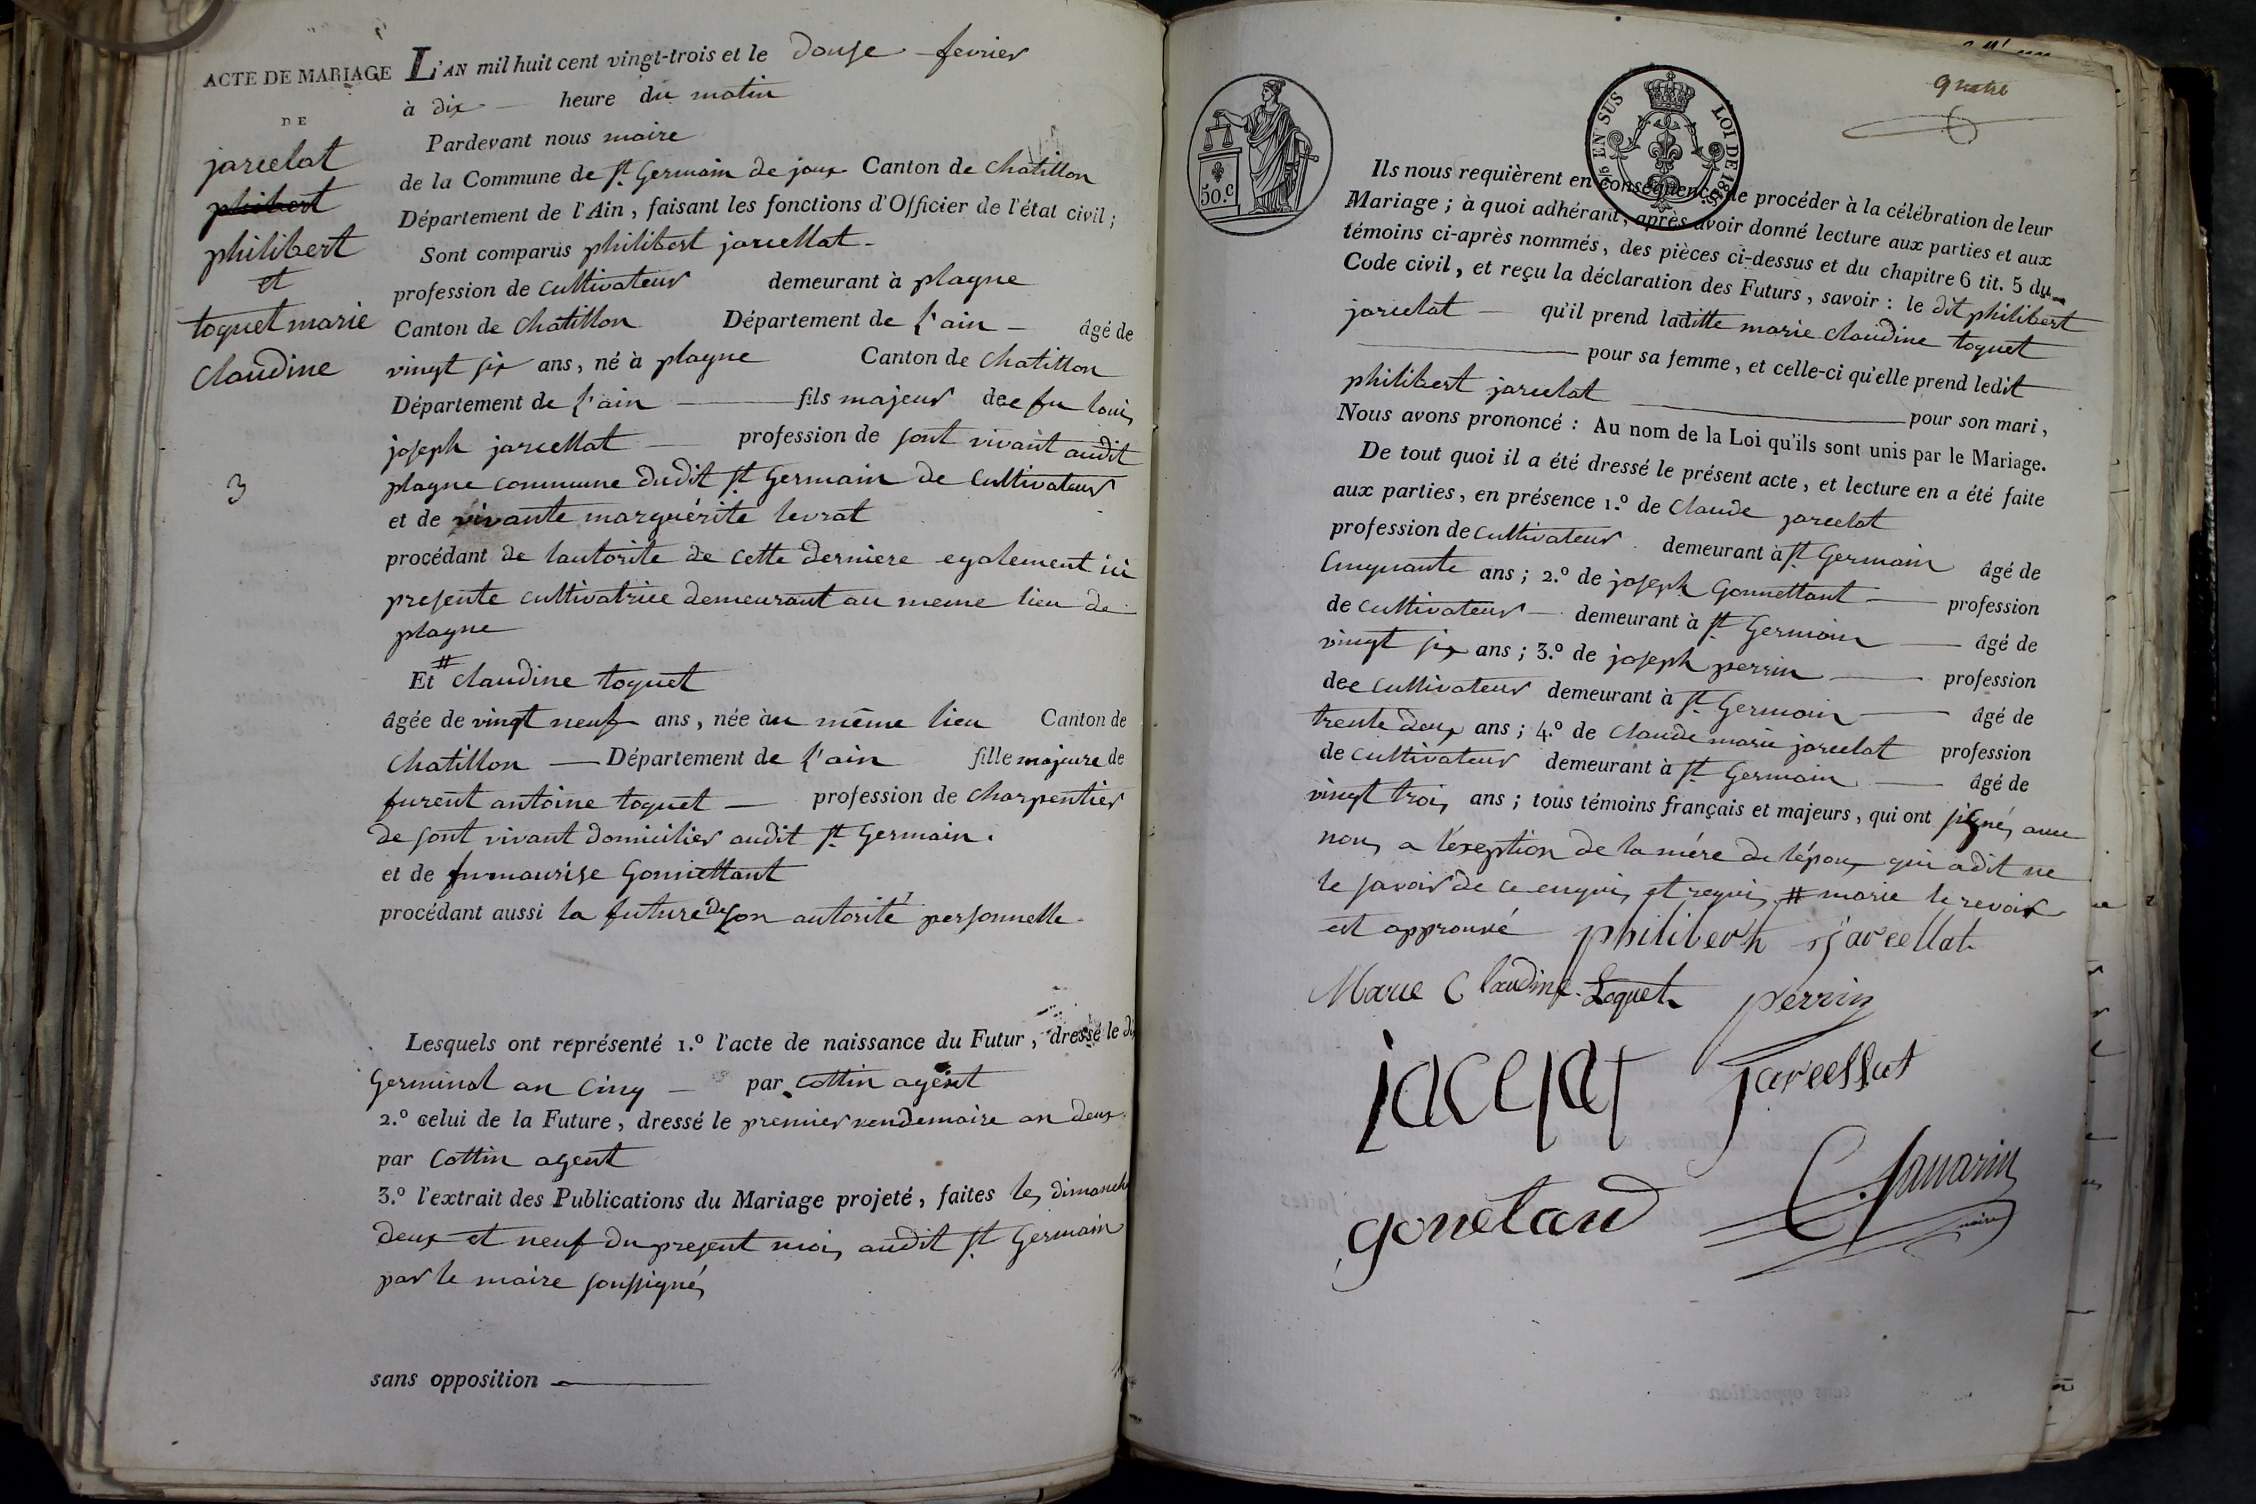 ACTE DE MARIAGE
DE
jarcelat
phibert
philibert
et
toquet marie
claudine
3
L'AN mil huit cent vingt-trois et le douse fevrier
à dix — heure du matin
Pardevant nous maire
de la Commune de St Germain de joux Canton de chatillon
Département de l'Ain, faisant les fonctions d'Officier de l'état civil ;
Sont comparus philibert jarcellat -
profession de cultivateur demeurant à plagne
Canton de chatillon Département de l'ain — âgé de
vingt six ans, né à plagne Canton de chatillon
Département de l'ain — fils majeur de fu louis
joseph jarcellat — profession de sont vivant audit
plagne commune dudit St Germain de cultivateur
et de vivante marguérite levrat
procédant de lautorite de cette derniere egalement ici
presente cultivatrice demeurant au meme lieu de
plagne
Et # claudine toquet
âgée de vingt neuf ans, née àu même lieu Canton de
chatillon — Département de l'ain fille majeure de
furent antoine toquet — profession de charpentier
de sont vivant domicilier audit St Germain.
et de fu maurise Gonnettant
procédant aussi la future de son autorité personnelle.
Lesquels ont représenté 1.º l'acte de naissance du Futur, dressé le
Germinal an cinq — par cottin agent
2.º celui de la Future, dressé le premier vendemaire an deux
par cottin agent
3.º l'extrait des Publications du Mariage projeté, faites les dimanche
deux et neuf du present mois audit St Germain
par le maire soussigné
sans opposition —
50.c
5/5 EN SUS LOI DE
quatre
Ils nous requièrent en conséquence de procéder à la célébration de leur
Mariage ; à quoi adhérant, après avoir donné lecture aux parties et aux
témoins ci-après nommés, des pièces ci-dessus et du chapitre 6 tit. 5 du
Code civil, et reçu la déclaration des Futurs, savoir : le dit philibert
jarcelat — qu'il prend laditte marie claudine toquet
— pour sa femme, et celle-ci qu'elle prend ledit
philibert jarcelat — pour son mari,
Nous avons prononcé : Au nom de la Loi qu'ils sont unis par le Mariage.
De tout quoi il a été dressé le présent acte, et lecture en a été faite
aux parties, en présence 1.º de claude jarcelat
profession de cultivateur demeurant à St Germain âgé de
cinquante ans ; 2.º de joseph Gonnettant — profession
de cultivateur — demeurant à St Germain — âgé de
vingt six ans ; 3.º de joseph perrin — profession
de cultivateur demeurant à St Germain — âgé de
trente deux ans ; 4.º de claude marie jarcelat profession
de cultivateur demeurant à St Germain — âgé de
vingt trois ans ; tous témoins français et majeurs, qui ont signés avec
nous a l'exeption de la mére de l'époux qui a dit ne
le savoir de ce enquis et requis # marie le revoix
est approuvé philibert jarcellat
Marie Claudine Toquet perrin
jacelat jarcellat
gonetand C. Savarin
maire